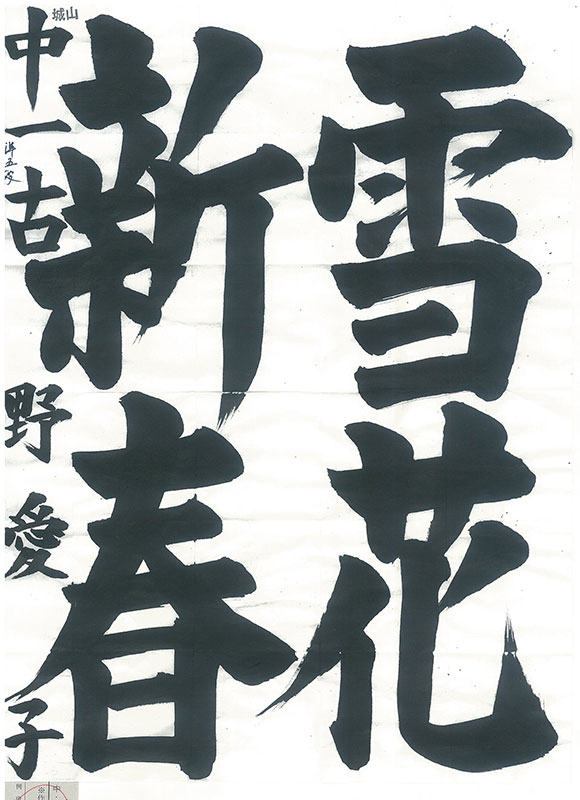 雪花
新春
山城
中一 古野愛子
準五段